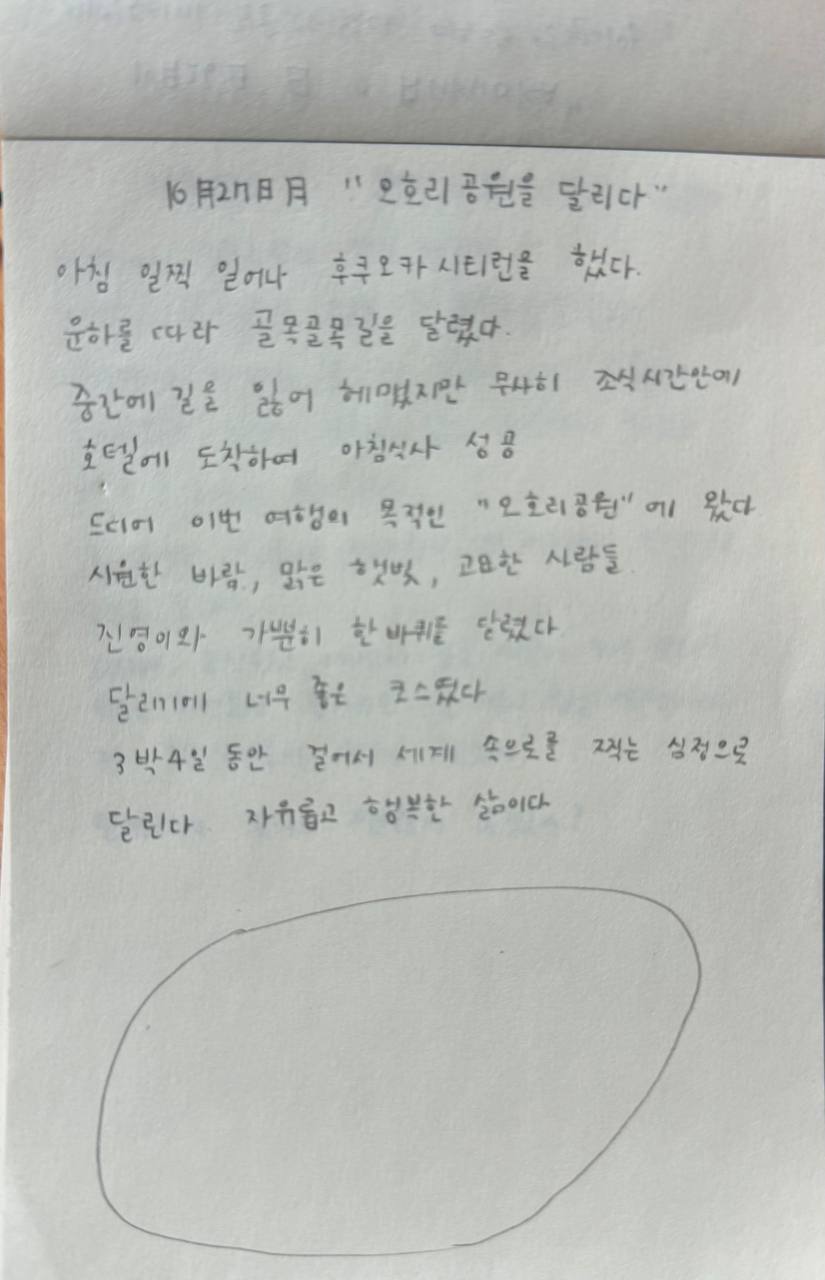 16月27日 月 "오호리공원을 달리다"
아침 일찍 일어나 후쿠오카 시티런을 했다.
윤하를 따라 골목골목길을 달렸다.
중간에 길을 잃어 헤맸지만 무사히 조식시간안에
호텔에 도착하여 아침식사 성공
드디어 이번 여행의 목적인 "오호리공원"에 왔다
시원한 바람, 맑은 햇빛, 고요한 사람들.
진영이와 가뿐히 한바퀴를 달렸다
달리기에 너무 좋은 코스였다
3박4일 동안 걸어서 세계 속으로를 찍는 심정으로
달린다. 자유롭고 행복한 삶이다